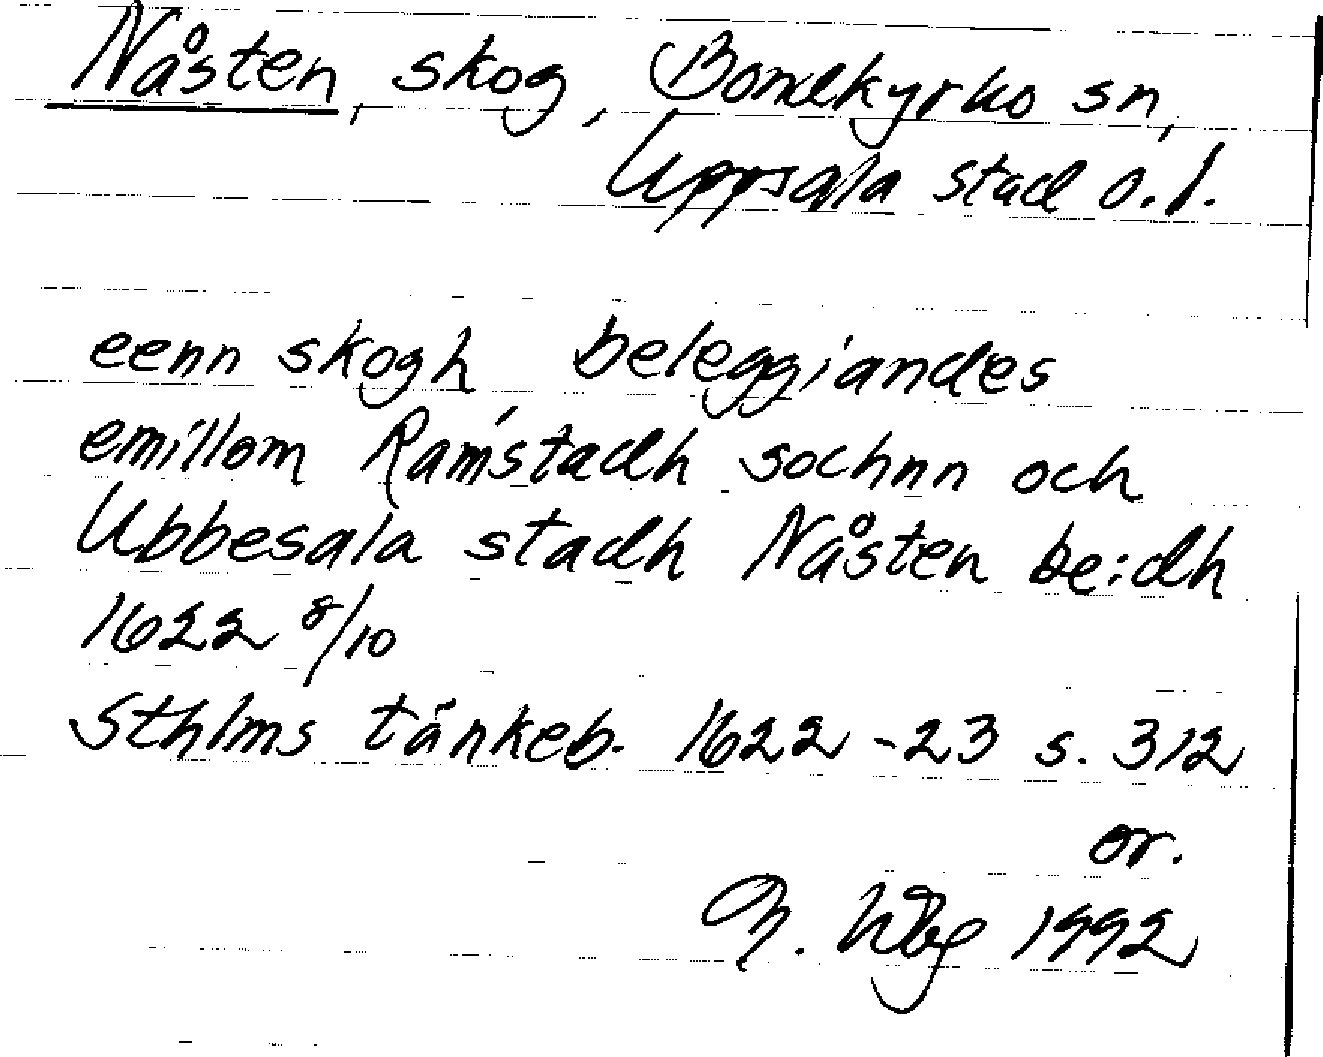 Nåsten, skog, Bondkyrko sn,
Uppsala stad o. l.
eenn skogh beleggiandes
emillom Ramstadh sochnn och
Ubbesala stadh Nåsten be:dh
1622 8/10
Sthlms tänkeb. 1622-23 s. 312
or.
Wbg 1992